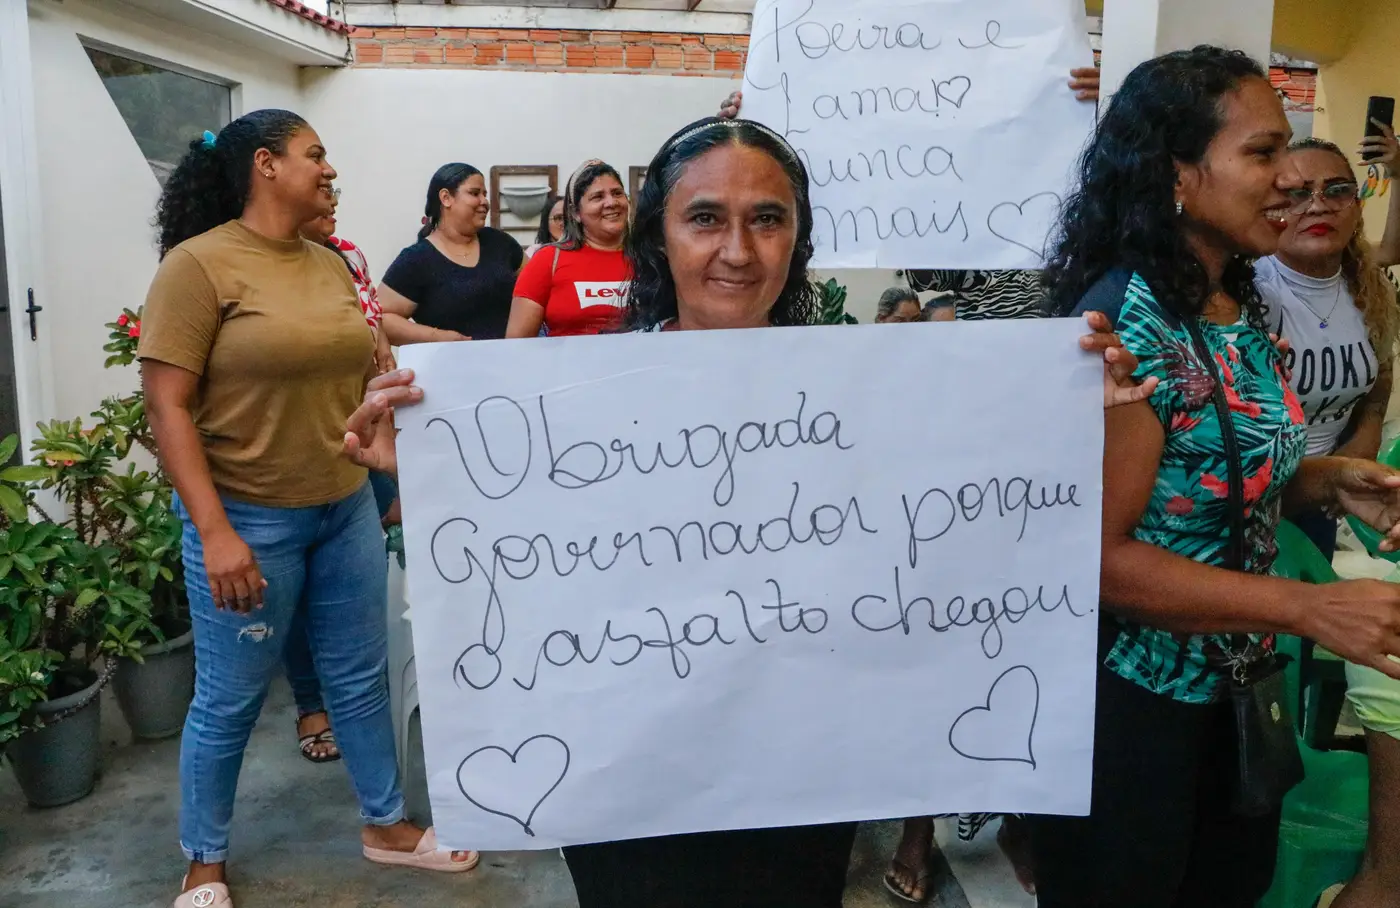 Poeira e
Lama!
nunca
mais
Obrigada
Governador porque
o asfalto chegou.